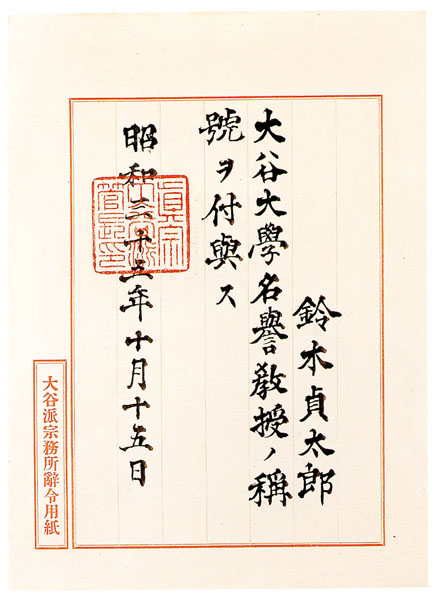 鈴木貞太郎
大谷大學名譽教授ノ稱
號ヲ付與ス
昭和三十五年十月十五日
大谷派宗務所辭令用紙